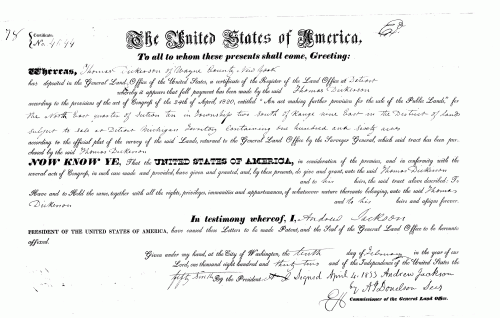 78
Certificate
No. 4844
The United States of America,
To all to whom these presents shall come, Greeting:
Whereas, Thomas Dickerson of Wayne County New York
has deposited in the General Land Office of the United States, a certificate of the Register of the Land Office at Detroit
whereby it appears that full payment has been made by the said Thomas Dickerson
according to the provisions of the act of Congress of the 24th of April, 1820, entitled "An act making further provision for the sale of the Public Lands," for
the North East quarter of Section ten in Township two South of Range nine East in the District of Lands
subject to sale at Detroit Michigan Territory Containing one hundred and sixty acres
according to the official plat of the survey of the said Lands, returned to the General Land Office by the Surveyor General, which said tract has been pur-
chased by the said Thomas Dickerson
NOW KNOW YE, That the UNITED STATES OF AMERICA, in consideration of the premises, and in conformity with the
several acts of Congress, in such case made and provided, have given and granted, and, by these presents, do give and grant, unto the said Thomas Dickerson
and to his heirs, the said tract above described: To
Have and to Hold the same, together with all the rights, privileges, immunities and appurtenances, of whatsoever nature thereunto belonging, unto the said Thomas
Dickerson and to his heirs and assigns forever.
In testimony whereof, I, Andrew Jackson
PRESIDENT OF THE UNITED STATES OF AMERICA, have caused these Letters to be made Patent, and the Seal of the General Land Office to be hereunto
affixed.
Given under my hand, at the City of Washington, the tenth day of February in the year of our
Lord, one thousand eight hundred and thirty two and of the Independence of the United States the
fifty sixth By the President. Signed April 4. 1833 Andrew Jackson
By A J Donelson Secy
Commissioner of the General Land Office.